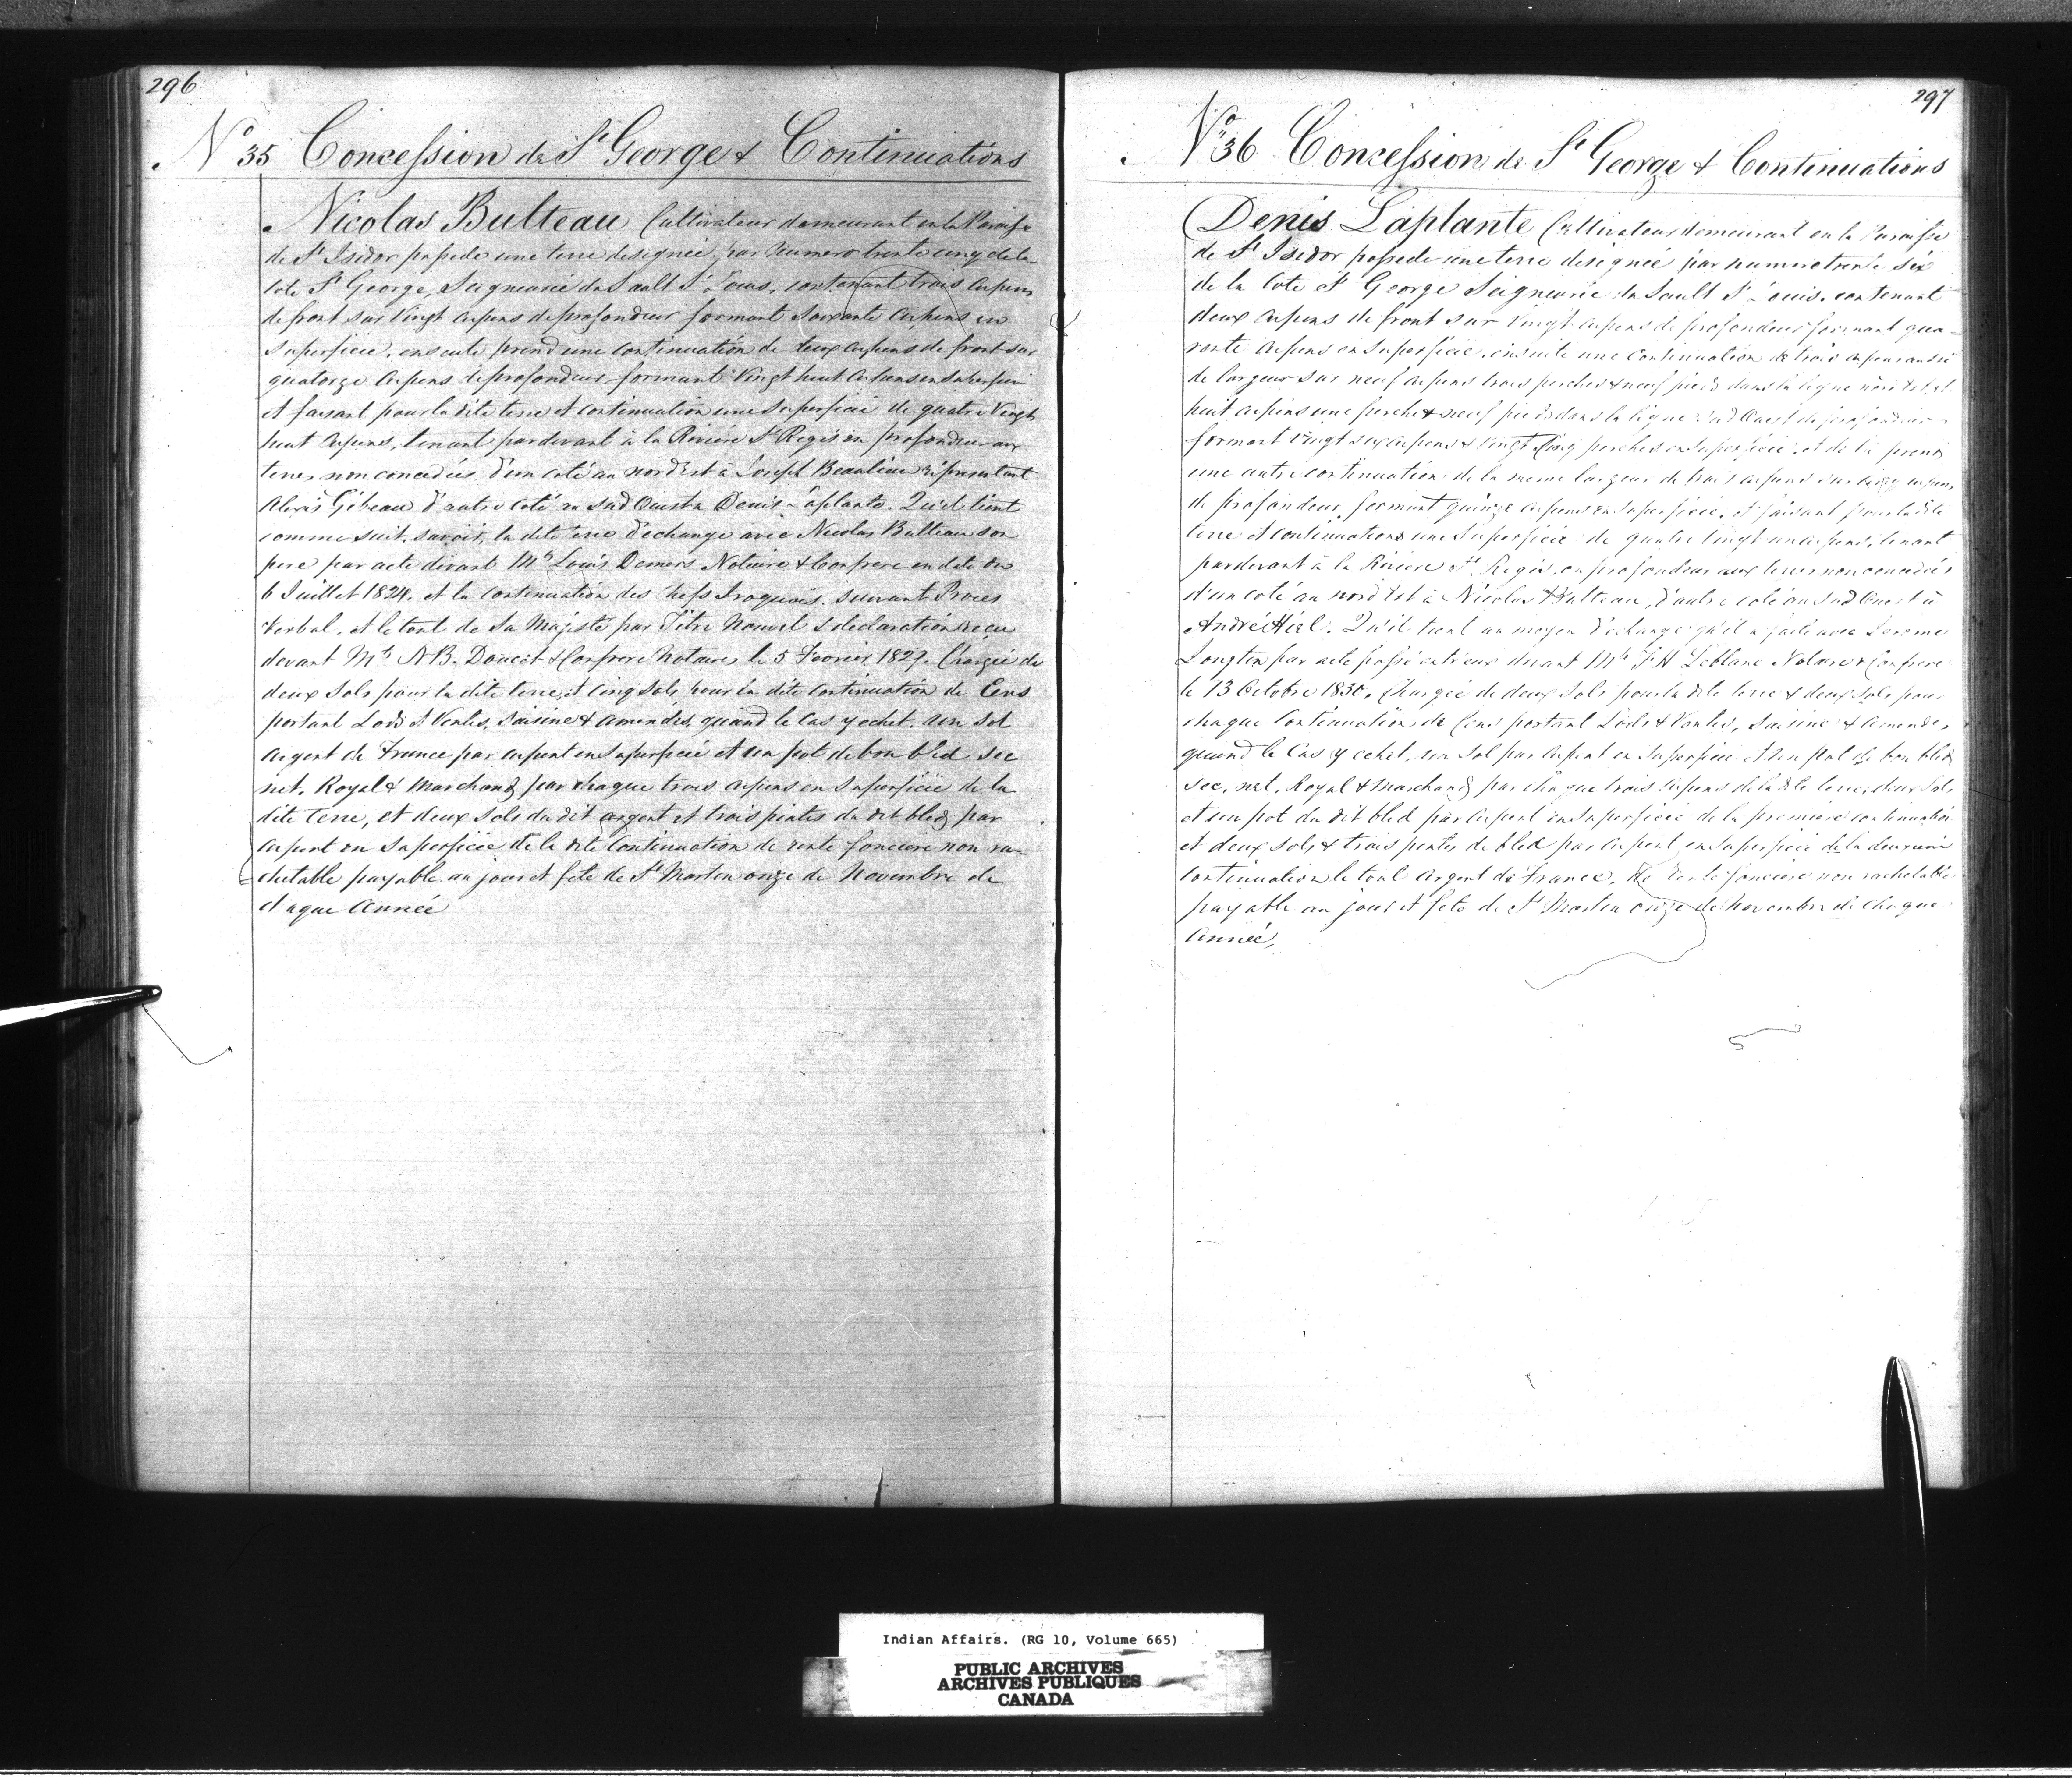 296
No 35 Concession de St George & Continuations
Nicolas Bulteau Cultivateur demeurant en la Paroisse
de St Isidor possede une terre designée par Numero trente cinq de la
Cote St George, Seigneurie du Sault St Louis, contenant trois Arpens
de front sur Vingt Arpens de profondeur formant soixante Arpens en
superficie, ensuite prend une Continuation de deux arpens de front sur
quatorze Arpens de profondeur formant Vingt huit Arpens en Superficie
et faisant pour la dite terre et continuation une Superficie de quatre Vingt
huit Arpens, tenant par devant à la Riviere St Regis en profondeur aux
terres non concedées d'un coté au nord Est à Joseph Beaulieu représentant
Alexis Gibeau d'autre coté au Sud Ouest à Denis Laplante. Qu'il tient
comme suit, savoir, la dite terre d'echange avec Nicolas Bulteau son
pere par acte devant Mtre Louis Demers Notaire & Confrere en date du
6 Juillet 1824. et la Continuation des Chefs Iroquois. suivant Proces
Verbal, et le tout de Sa Majesté par Titre Nouvel & declaration reçu
devant Mtre N.B. Doucet & Confrere Notaires le 5 Fevrier 1827. Chargée de
deux Sols pour la dite terre, et cinq Sols pour la dite Continuation de Cens
portant Lods & Ventes, Saisine & amendes, quand le Cas y echet. un Sol
argent de France par arpent en Superficie et un pot de bon bled sec
net, Royal & Marchand par chaque trois arpens en Superficie de la
dite Terre, et deux Sols du dit argent et trois pintes du dit bled par
arpent en Superficie de la dite Continuation de rente fonciere non ra=
chetable payable au jour et fete de St Martin onze de Novembre de
chaque Année
297
No 36 Concession de St George & Continuations
Denis Laplante Cultivateur demeurant en la Paroisse
de St Isidor possede une terre designée par numero trente six
de la Cote St George Seigneurie du Sault St Louis. contenant
deux Arpens de front sur Vingt Arpens de profondeur formant qua=
rante Arpens en Superficie. ensuite une Continuation de trois arpens aussi
de largeur sur neuf arpens trois perches & neuf pieds dans la ligne nord Est, et
huit arpens une perche & neuf pieds dans la ligne Sud Ouest de profondeur
formant Vingt six arpens & Vingt Cinq perches en Superficie, et de là prend
une autre continuation de la meme largeur de trois arpens sur cinq arpens
de profondeur, formant quinze arpens en Superficie, et faisant pour la dite
terre et continuations une Superficie de quatre vingt un arpens, tenant
par devant à la Riviere St Regis en profondeur aux terres non concedées
d'un coté au nord Est à Nicolas Bulteau, d'autre coté au Sud Ouest à
André Hiel. Qu'il tient au moyen d'echange qu'il a fait avec Jerome
Longtin par acte passé entr'eux devant Mtre F.H. Leblanc Notaire & Confrere
le 13 Octobre 1830. Chargée de deux Sols pour la dite terre & deux Sols pour
chaque Continuation de Cens portant Lods & Ventes, Saisine & Amendes,
quand le Cas y echet, un Sol par Arpent en Superficie et un pot de bon bled
sec, net, Royal & Marchand par chaque trois Arpens de la dite terre, deux Sols
et un pot du dit bled par arpent en Superficie de la premiere continuation
et deux Sols & trois pintes de bled par arpent en Superficie de la deuxieme
Continuation le tout Argent de France, de Rente fonciere non rachetable
payable au jour et fete de St Martin onze de Novembre de chaque
Année,
Indian Affairs. (RG 10, Volume 665)
PUBLIC ARCHIVES
ARCHIVES PUBLIQUES
CANADA